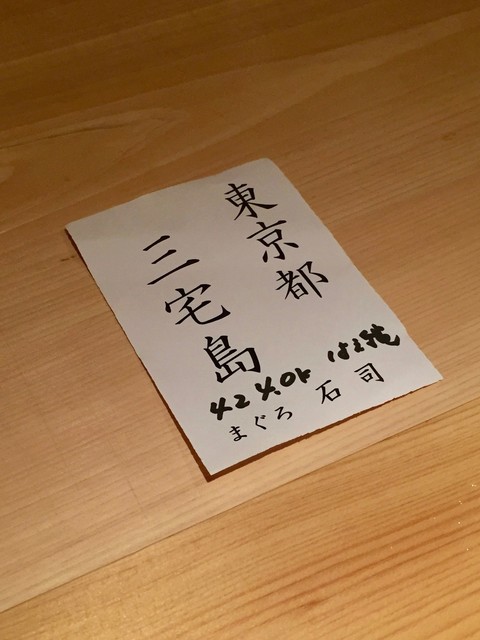 東京都
三宅島
はえ縄
まぐろ 石司